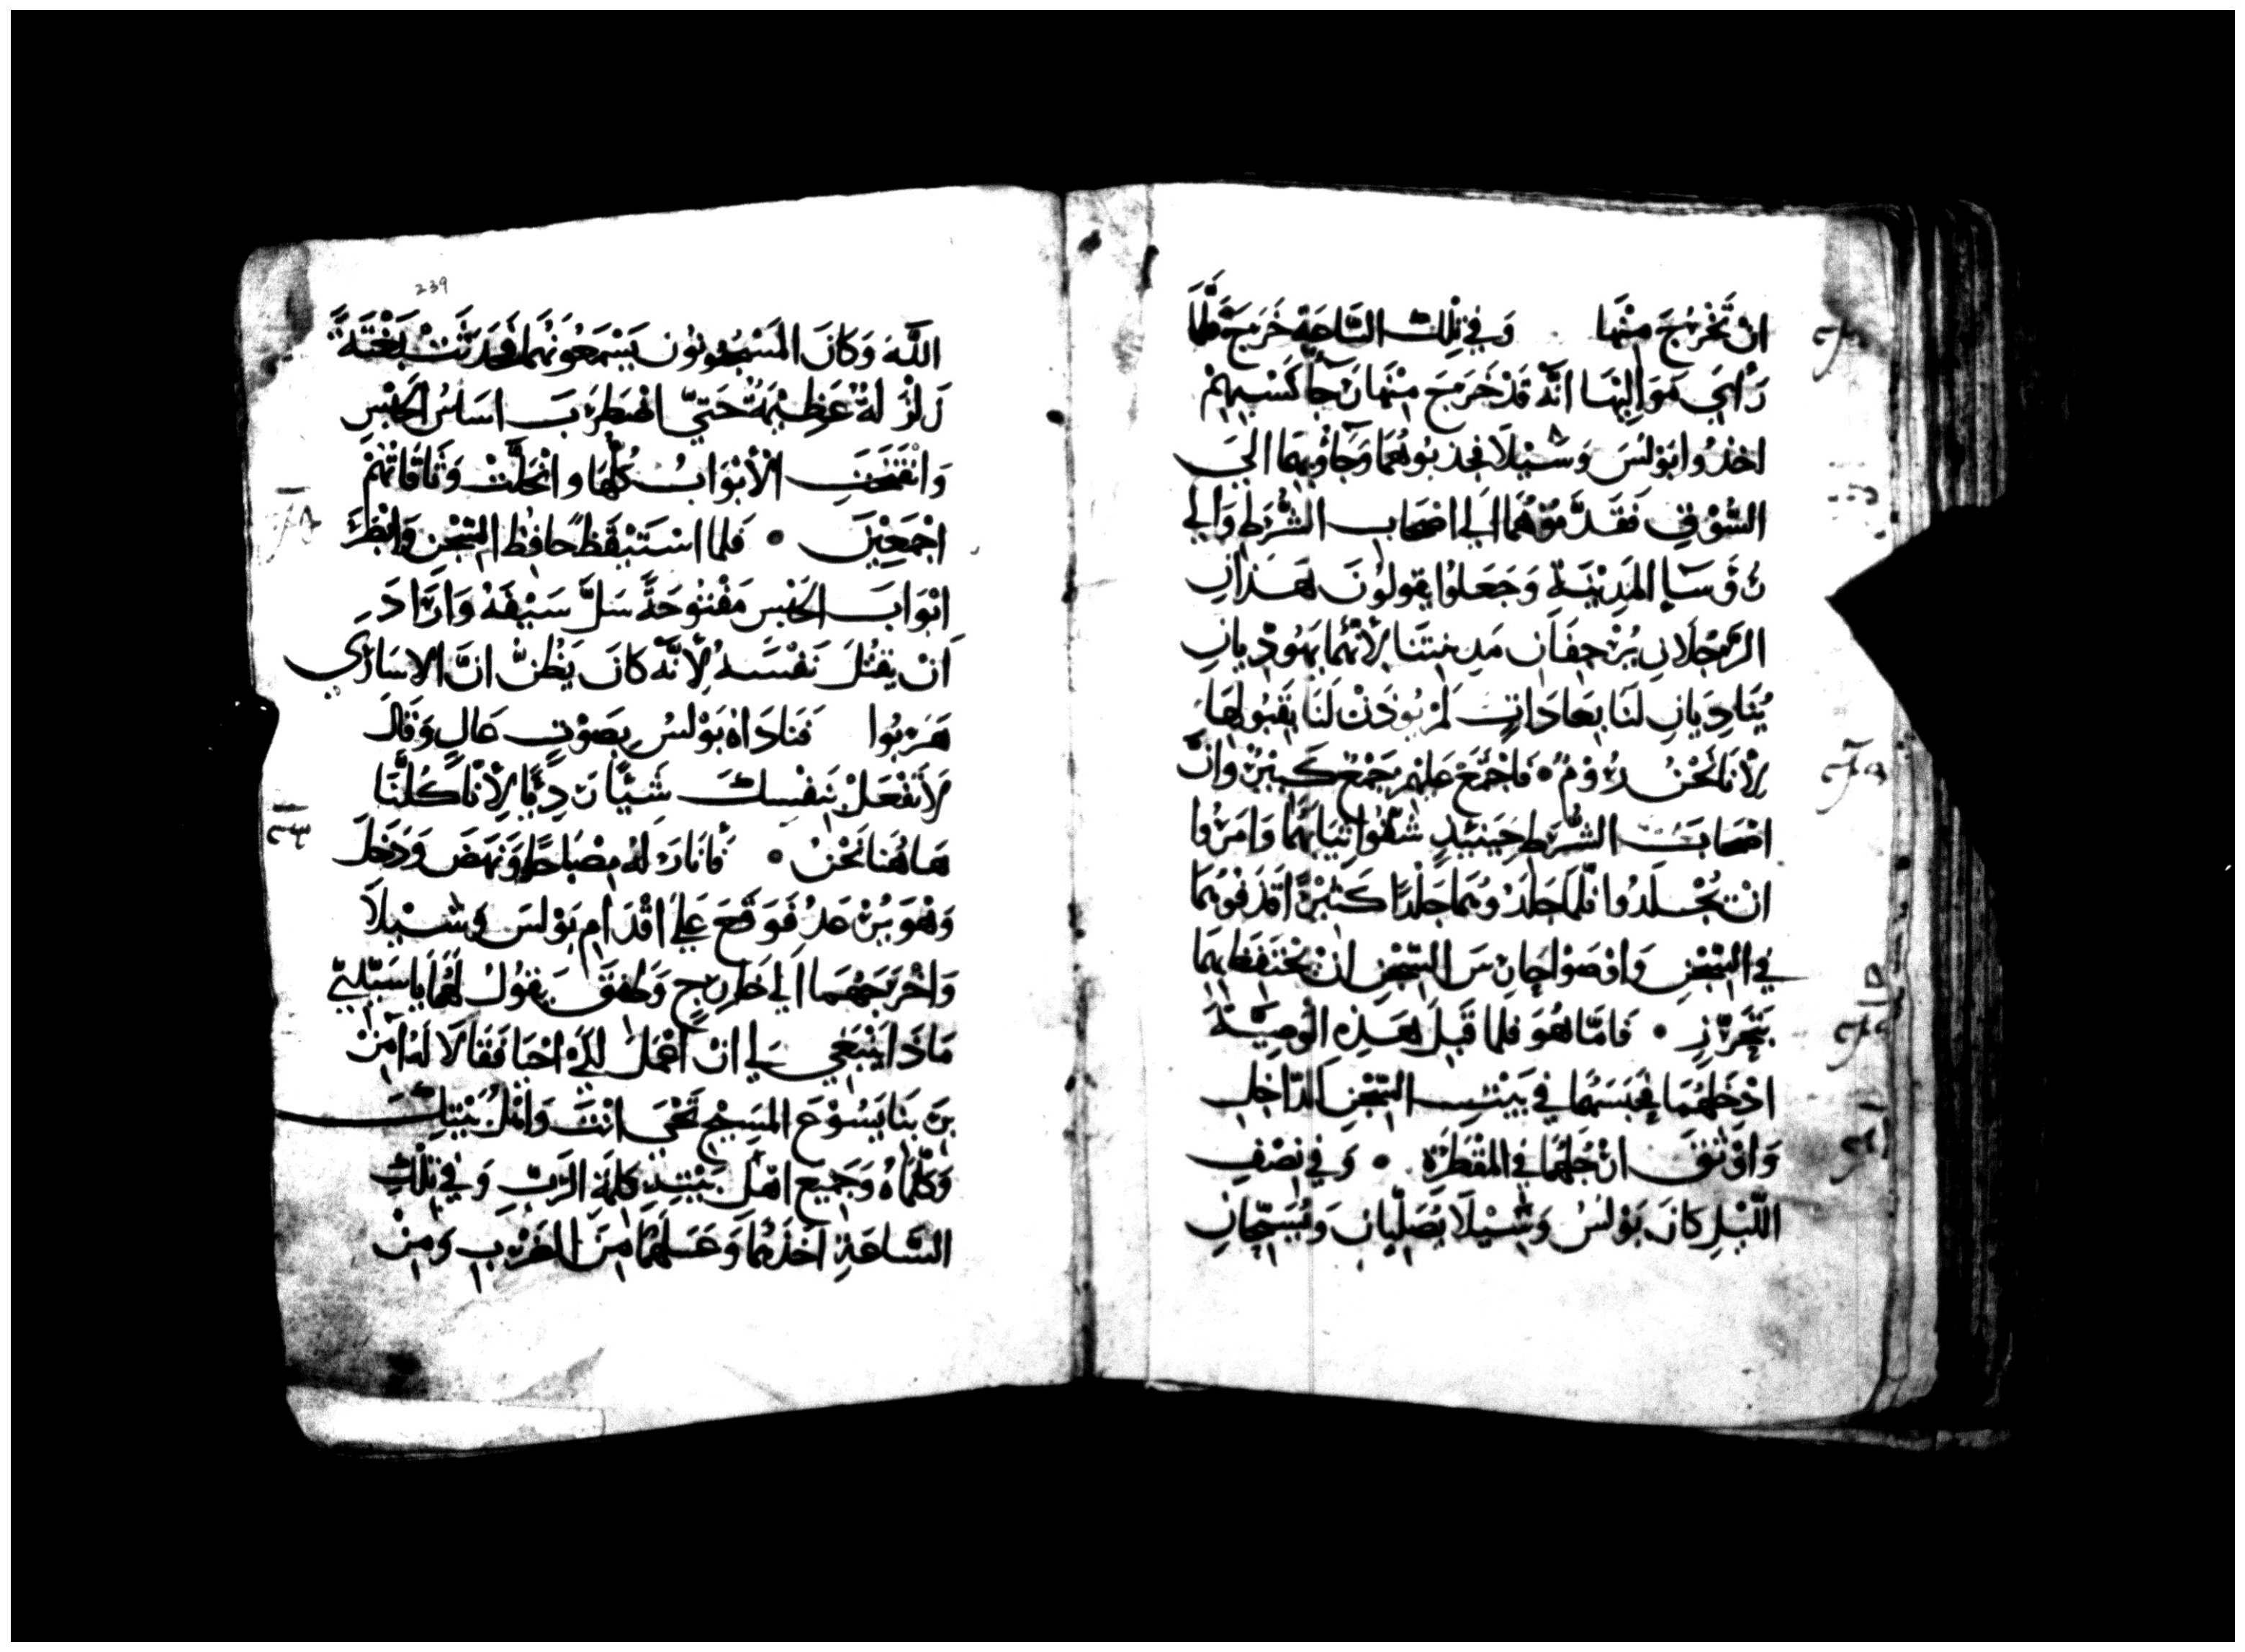 ان تَخْرُجَ مِنْهَا وَفي تِلْكَ السَّاعَةِ خَرَجَ فَلَمَّا
رَاي مَوَالِيْهَا انَّه قَدْ خَرَجَ مِنْهَا رَجَآ كَسْبِهِمْ
اخذُوا بَوْلسَ وَشِيْلَا فجذبوهُمَا وَجَآوْبِهِمَا الي
السُّوْقِ فَقَدَّمُوْهُمَا الي اصْحَابِ الشُّرَطِ وَالي
رُوسَآءِ المَدِيْنَةِ وَجَعَلوُا يقولوُنَ هَذَانِ
الرَّجُلَانِ يُرْجِفَانِ مَدِينتَنَا لِأنَّهُمَا يَهُودِيانِ
يُنَادِيَانِ لنَا بِعَادَاتٍ لَمْ يُوذَنْ لَنَا بِقَبُولِهَا
لِأنَّا نَحْنُ رُوْمٌ • فَاجْتَمَعَ عَليْهِم جَمْعٌ كَبِيْرٌ وَانَّ
اصْحَابَ الشُّرَطِ حِينَئِذٍ شَقُّوا ثِيَابَهُمَا وَامَرُوا
انْ يُجْلَدُوا فَلَمَّا جَلَدُوهُمَا جَلْدًا كَثِيْرًا قَذَفُوهُمَا
في السِّجْنِ وَاوْصَوْا حَارِسَ السِّجْنِ انْ يَحْتَفِظَ بِهِمَا
بَتَحَرُّزٍ • فَامَّا هُوَ فَلما قَبِلَ هَذِهِ الْوَصِيَّةَ
ادْخَلهُمَا فَحَبَسَهُمَا في بَيْتِ السِّجْنِ الدَّاخِلِ
وَاوْثَقَ ارْجُلَهُمَا في المقْطَرَةِ • وَفي نِصْفِ
اللَّيْلِ كَانَ بَوْلسُ وَشِيْلَا يُصَلِّيَانِ وَيُسَبِّحَانِ
239
اللَّهَ وَكَانَ المَسْجُونُون يَسْمَعُونَهُمَا فَحَدَثَتْ بَغْتَةً
زَلْزَلةٌ عَظِيْمَةٌ حَتيَّ اضْطَرَبَ اسَاسُ الحَبْسِ
وَانْفَتَحَتِ الْأَبْوَابُ كُلُّهَا وانْحَلَّتْ وَثَاقَاتهُمْ
اجْمَعِيْنَ • فَلما اسْتَيْقَظَ حَافِظُ السِّجْنِ وَابْصَرَ
ابْوَابَ الحَبْسِ مَفْتُوحَةً سَلَّ سَيْفَهُ وَارَادَ
اَنْ يقتُلَ نَفْسَهُ لِأنَّهُ كَانَ يَظُنُّ انَّ الاسَارَي
هَرَبُوا فَنَادَاهُ بَوْلسُ بِصَوْتٍ عَالٍ وَقَال
لَا تَفْعَلْ بِنَفْسِكَ شَيْئًا رَدِيًّا لِأنَّا كُلُّنَا
هَاهُنَا نَحْنُ • فَانَارَ لهُ مِصْبَاحًا وَنَهَضَ وَدَخَلَ
وَهْوَ يُرْعَدُ فَوَقَعَ عَليَ اقْدَامِ بَوْلسَ وشِيْلَا
وَاخْرَجَهُمَا الي خَارِجٍ وَطَفِقَ يَقُولُ لَهُمَا يَا سَيِّدَيَّ
مَاذَا يَنْبَغِي لي انْ اعْمَلَ لِكَيْ احْيَا فَقَالَا لَهُ آمِنْ
بِرَبِنَا يَسُوْعَ المَسِيْحِ تَحْيَ انْتَ وَاهْلُ بَيْتِكَ
وَكَلَّمَاهُ وَجَمِيعَ اهْلِ بَيْتِهِ كَلِمَةَ الرَّبِّ وَفي تِلْكَ
السَّاعَةِ اخَذَهُمَا وَغَسَلَهُمَا مِنَ الضَرْبِ وَمِنْ